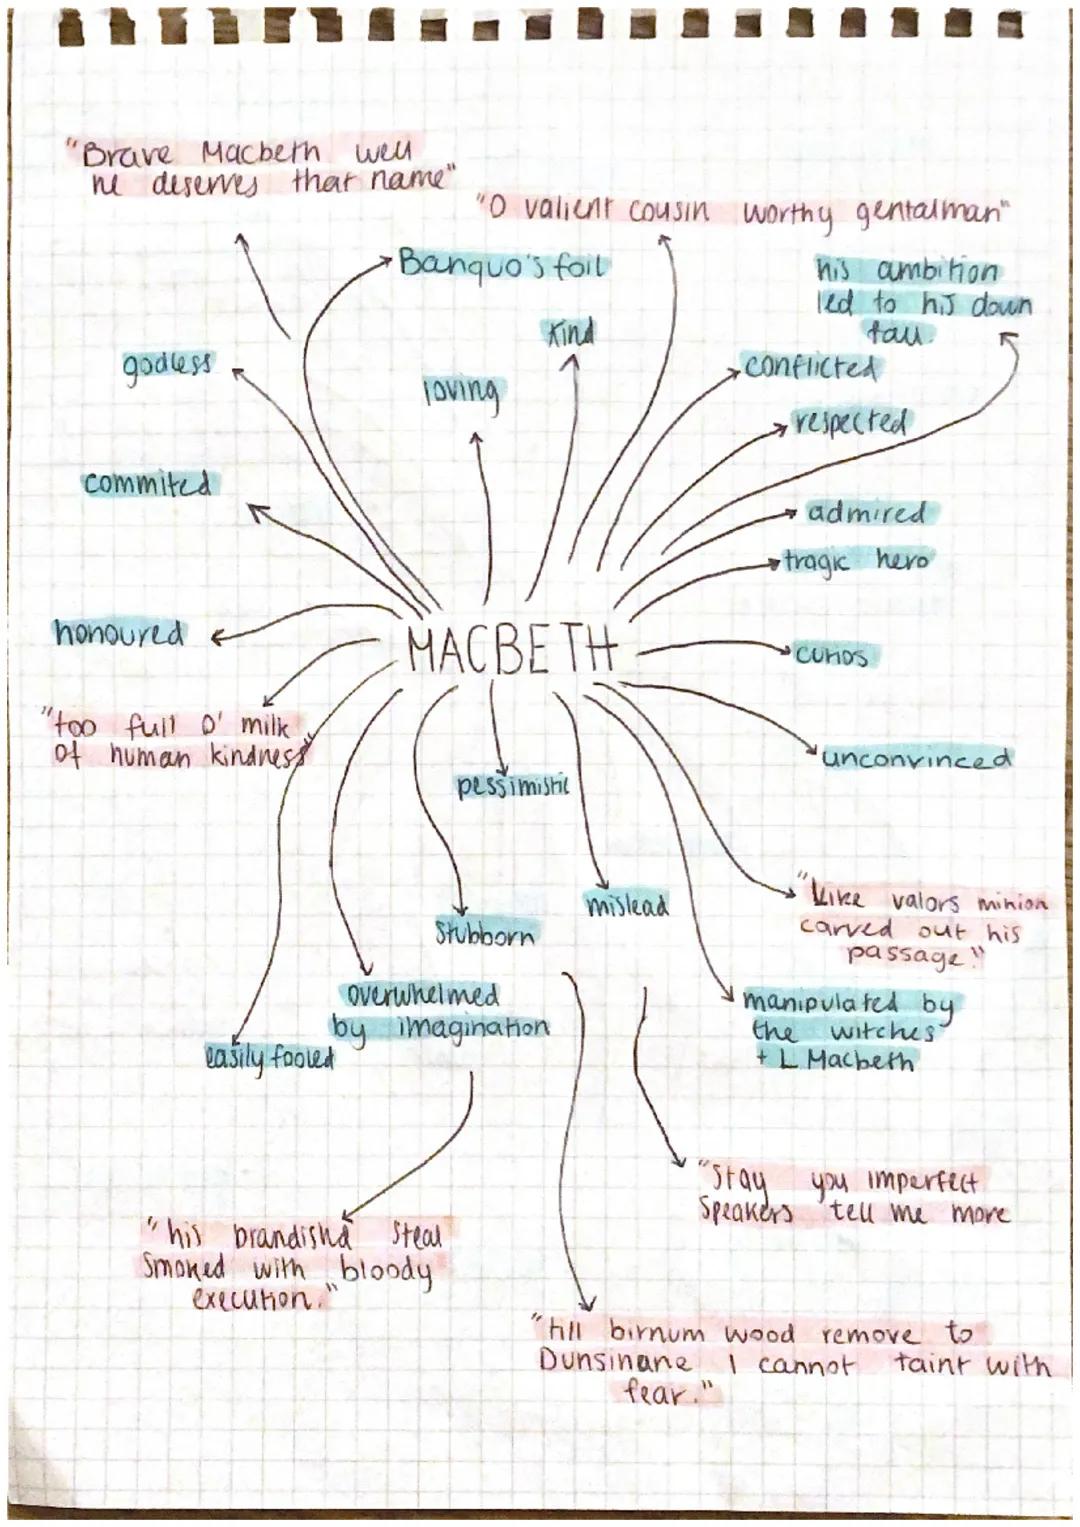 "Brave Macbeth well
he deserves that name"
"O valient cousin worthy gentalman"
Banquo's foil
his ambition
led to his down
fall.
kind
godless
conflicted
loving
respected
commited
admired
tragic hero
honoured
MACBETH
curios
"too full O' milk
of human kindness"
unconvinced
pessimistic
"Like valors minion
carved out his
passage"
mislead
stubborn
overwhelmed
by imagination
manipulated by
the witches
+ L Macbeth
easily fooled
"Stay you imperfect
speakers tell me more
"his brandishd steal
smoked with bloody
execution."
"till birnum wood remove to
Dunsinane I cannot taint with
fear."